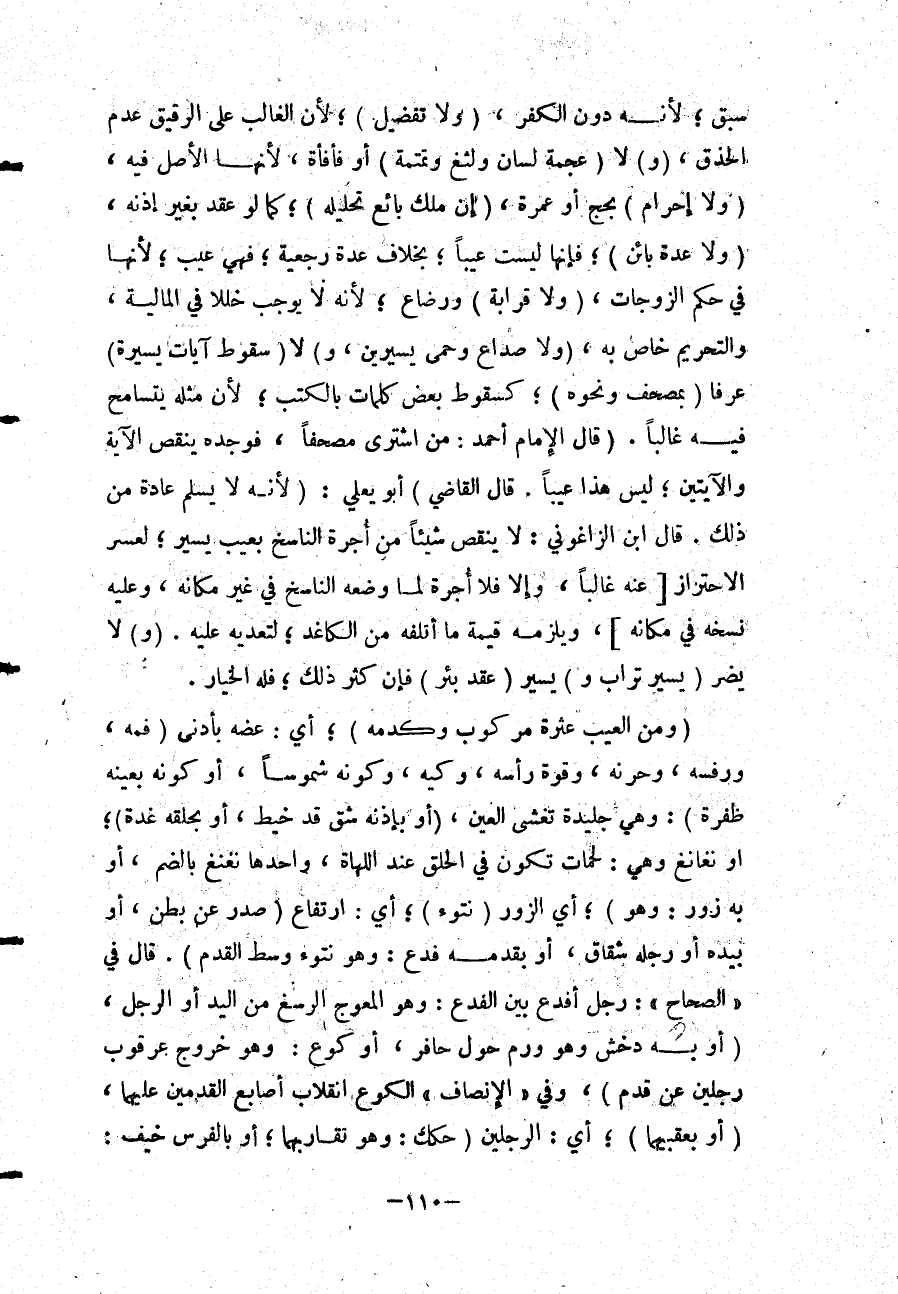 سبق ؛ لأنــه دون الكفر ، ( ولا تفضيل ) ؛ لأن الغالب على الرقيق عدم
الحذق ، (و) لا ( عجمة لسان ولثغ وتمتمة ) أو فأفأة ، لأنهــا الأصل فيه ،
( ولا إحرام ) بحج أو عمرة ، ( إن ملك بائع تحليله ) ؛ كما لو عقد بغير إذنه ،
( ولا عدة بائن ) ؛ فإنها ليست عيباً ؛ بخلاف عدة رجعية ؛ فهي عيب ؛ لأنهـا
في حكم الزوجات ، ( ولا قرابة ) ورضاع ؛ لأنه لا يوجب خللا في المالية ،
والتحريم خاص به ، (ولا صداع وحمى يسيرين ، و) لا ( سقوط آيات يسيرة)
عرفا ( بمصحف ونحوه ) ؛ كسقوط بعض كلمات بالكتب ؛ لأن مثله يتسامح
فيــه غالباً . ( قال الإمام أحمد : من اشترى مصحفاً ، فوجده ينقص الآية
والآيتين ؛ ليس هذا عيباً . قال القاضي ) أبو يعلي : ( لأنـه لا يسلم عادة من
ذلك . قال ابن الزاغوني : لا ينقص شيئاً من أجرة الناسخ بعيب يسير ؛ لعسر
الاحتراز [ عنه غالباً ، وإلا فلا أجرة لمـا وضعه الناسخ في غير مكانه ، وعليه
نسخه في مكانه ] ، ويلزمـه قيمة ما أتلفه من الكاغد ؛ لتعديه عليه . (و) لا
يضر ( يسير تراب و ) يسير ( عقد بئر ) فإن كثر ذلك ؛ فله الخيار .
( ومن العيب عثرة مركوب وكدمه ) ؛ أي : عضه بأدنى ( فمه ،
ورفسه ، وحرنه ، وقوة رأسه ، وكيه ، وكونه شموســاً ، أو كونه بعينه
ظفرة ) : وهي جليدة تغشى العين ، (أو بإذنه شق قد خيط ، أو بحلقه غدة)؛
او نغانغ وهي : لحمات تكون في الحلق عند اللهاة ، واحدها نغنغ بالضم ، أو
به زور : وهو ) ؛ أي الزور ( نتوء ) ؛ أي : ارتفاع ( صدر عن بطن ، أو
بيده أو رجله شقاق ، أو بقدمــه فدع : وهو نتوء وسط القدم ) . قال في
« الصحاح » : رجل أفدع بين الفدع : وهو المعوج الرسغ من اليد أو الرجل ،
( أو بــه دخش وهو ورم حول حافر ، أو كوع : وهو خروج عرقوب
رجلين عن قدم ) ، وفي « الإنصاف » الكوع انقلاب أصابع القدمين عليها ،
( أو بعقبيها ) ؛ أي : الرجلين ( حكك : وهو تقاربها ؛ أو بالفرس خيف :
–١١٠–